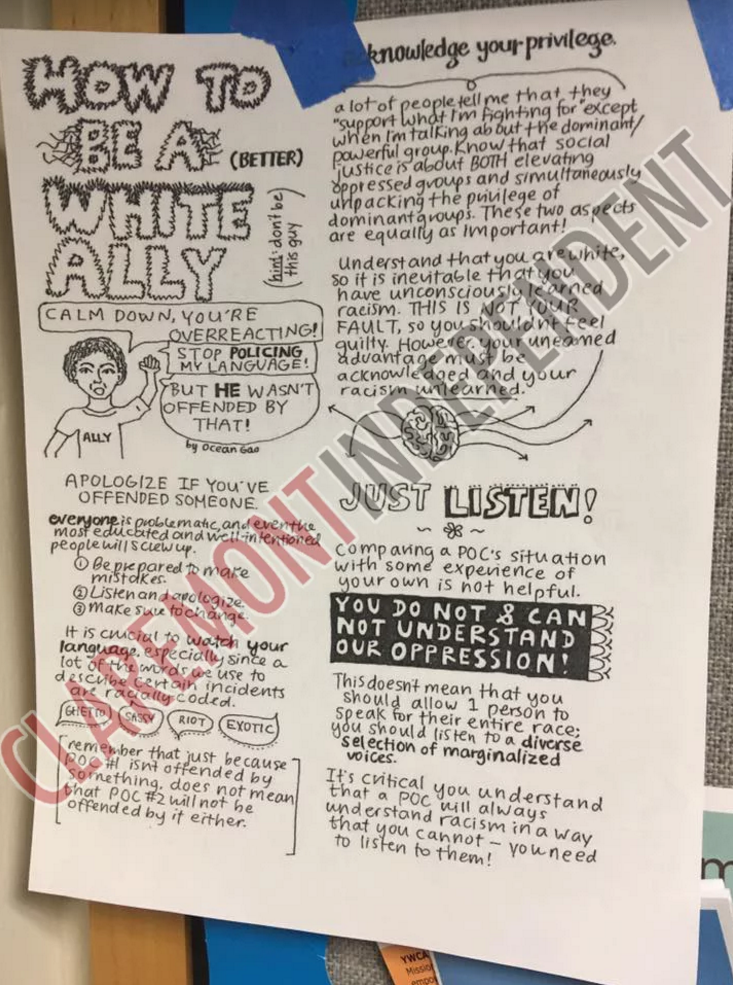 HOW TO
BE A (BETTER)
WHITE
ALLY
(hint: don't be
this guy)
CALM DOWN, YOU'RE
OVERREACTING!
STOP POLICING
MY LANGUAGE!
BUT HE WASN'T
OFFENDED BY
THAT!
ALLY
by Ocean Gao
APOLOGIZE IF YOU'VE
OFFENDED SOMEONE.
everyone is problematic, and even the
most educated and well-intentioned
people will screw up.
① Be prepared to make
mistakes.
② Listen and apologize.
③ Make sure to change.
It is crucial to watch your
language, especially since a
lot of the words we use to
describe certain incidents
are racially coded.
GHETTO SASSY RIOT EXOTIC
remember that just because
POC #1 isn't offended by
something, does not mean
that POC #2 will not be
offended by it either.
acknowledge your privilege.
a lot of people tell me that they
"support what I'm fighting for" except
when I'm talking about the dominant/
powerful group. Know that social
justice is about BOTH elevating
oppressed groups and simultaneously
unpacking the privilege of
dominant groups. These two aspects
are equally as important!
Understand that you are white,
so it is inevitable that you
have unconsciously learned
racism. THIS IS NOT YOUR
FAULT, so you shouldn't feel
guilty. However, your unearned
advantage must be
acknowledged and your
racism unlearned.
JUST LISTEN!
Comparing a POC's situation
with some experience of
your own is not helpful.
YOU DO NOT & CAN
NOT UNDERSTAND
OUR OPPRESSION!
This doesn't mean that you
should allow 1 person to
speak for their entire race;
you should listen to a diverse
selection of marginalized
voices.
It's critical you understand
that a POC will always
understand racism in a way
that you cannot – you need
to listen to them!
CLAREMONT INDEPENDENT
YWCA
Mission
empo
m